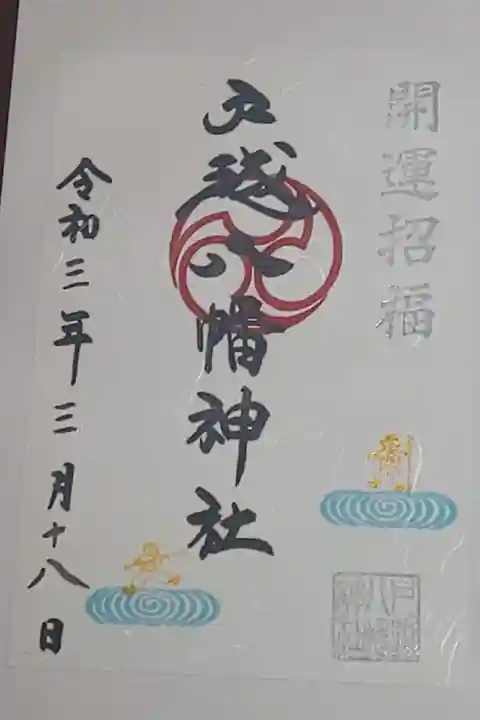 開運招福
戸越八幡神社
令和三年三月十八日
戸越
八幡
神社